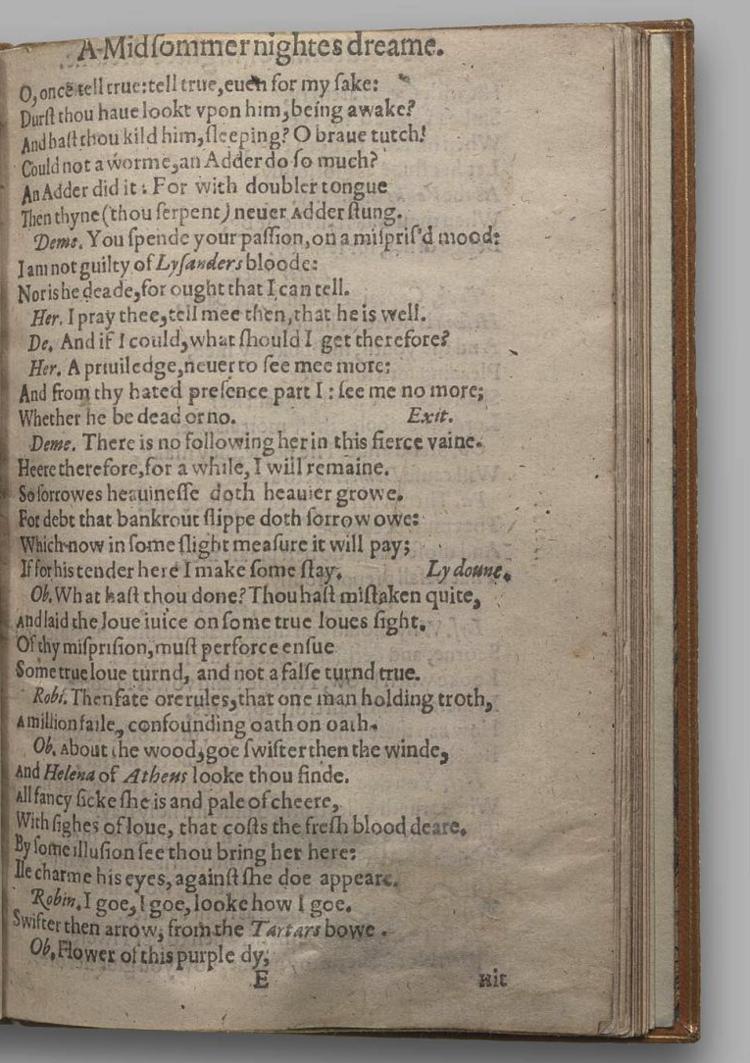 A Midſommer nightes dreame.
O, once tell true: tell true, euen for my ſake:
Durſt thou haue lookt vpon him, being awake?
And haſt thou kild him, ſleeping? O braue tutch!
Could not a worme, an Adder do ſo much?
An Adder did it: For with doubler tongue
Then thyne (thou ſerpent) neuer Adder ſtung.
Deme. You ſpende your paſſion, on a miſpriſ'd mood:
I am not guilty of Lyſanders bloode:
Nor is he deade, for ought that I can tell.
Her. I pray thee, tell mee then, that he is well.
De. And if I could, what ſhould I get therefore?
Her. A priuiledge, neuer to ſee mee more:
And from thy hated preſence part I: ſee me no more;
Whether he be dead or no. Exit.
Deme. There is no following her in this fierce vaine.
Heere therefore, for a while, I will remaine.
So ſorrowes heauineſſe doth heauier growe.
For debt that bankrout ſlippe doth ſorrow owe:
Which now in ſome ſlight meaſure it will pay;
If for his tender here I make ſome ſtay. Ly doune.
Ob. What haſt thou done? Thou haſt miſtaken quite,
And laid the loue iuice on ſome true loues ſight.
Of thy miſpriſion, muſt perforce enſue
Some true loue turnd, and not a falſe turnd true.
Robi. Then fate orerules, that one man holding troth,
A million faile, confounding oath on oath.
Ob. About the wood, goe ſwifter then the winde,
And Helena of Athens looke thou finde.
All fancy ſicke ſhe is and pale of cheere,
With ſighes of loue, that coſts the freſh blood deare.
By ſome illuſion ſee thou bring her here:
Ile charme his eyes, againſt ſhe doe appeare.
Robin. I goe, I goe, looke how I goe.
Swifter then arrow, from the Tartars bowe.
Ob. Flower of this purple dy,
E Hit